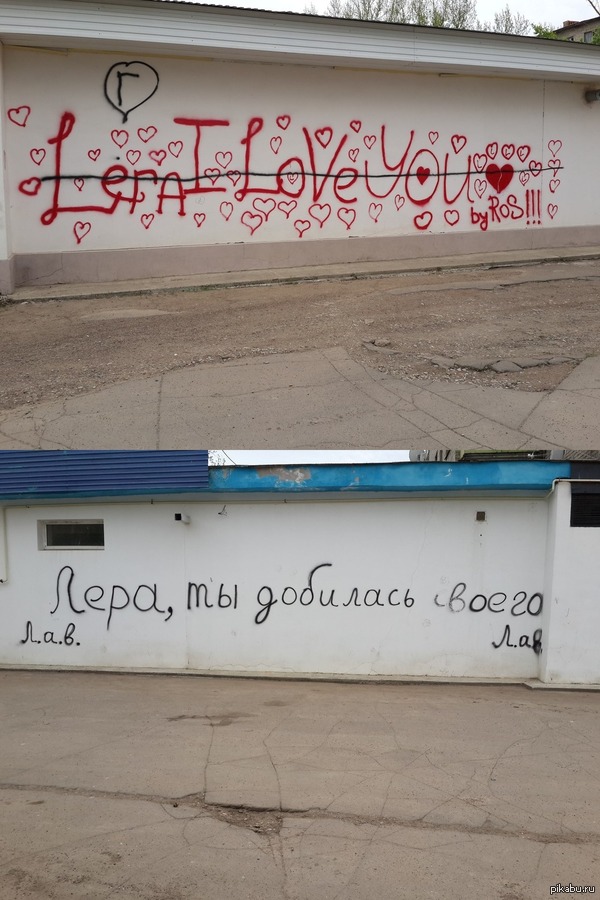 Г
Lera I Love you
by RoS!!!
Лера, ты добилась своего
Л.а.в.
Л.а.в
pikabu.ru